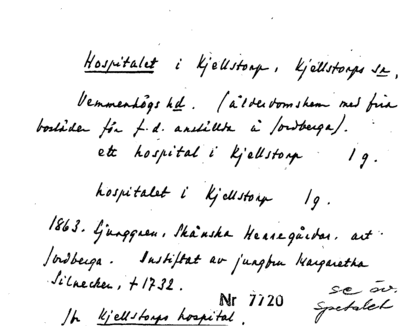 Hospitalet i Kjellstorp, Kjellstorps sn,
Vemmenhögs hd. (ålderdomshem med fria
bostäder för f.d. anställda å Jordberga).
ett hospital i Kjellstorp 1 g.
hospitalet i Kjellstorp 1 g.
1863. Ljunggren, Skånska Herregårdar. art
Jordberga. Instiftat av jungfru Margaretha
Silnecker, † 1732.
Nr 7720
se äv.
Spetalet
Kjellstorps hospital.